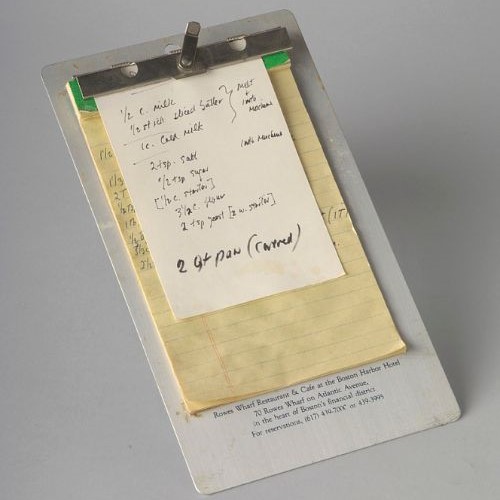 1/2 c. milk
1/2 stick sliced butter } melt + into machine
1c. Cold milk into machine
2 tsp. salt
1/2 tsp sugar
[1/2 c. starter]
3 1/2 c. flour
2 tsp yeast [2 w. starter]
2 Qt pan (curved)
Rowes Wharf Restaurant & Cafe at the Boston Harbor Hotel
70 Rowes Wharf on Atlantic Avenue,
in the heart of Boston's financial district
For reservations, (617) 439.7000 or 439.3995